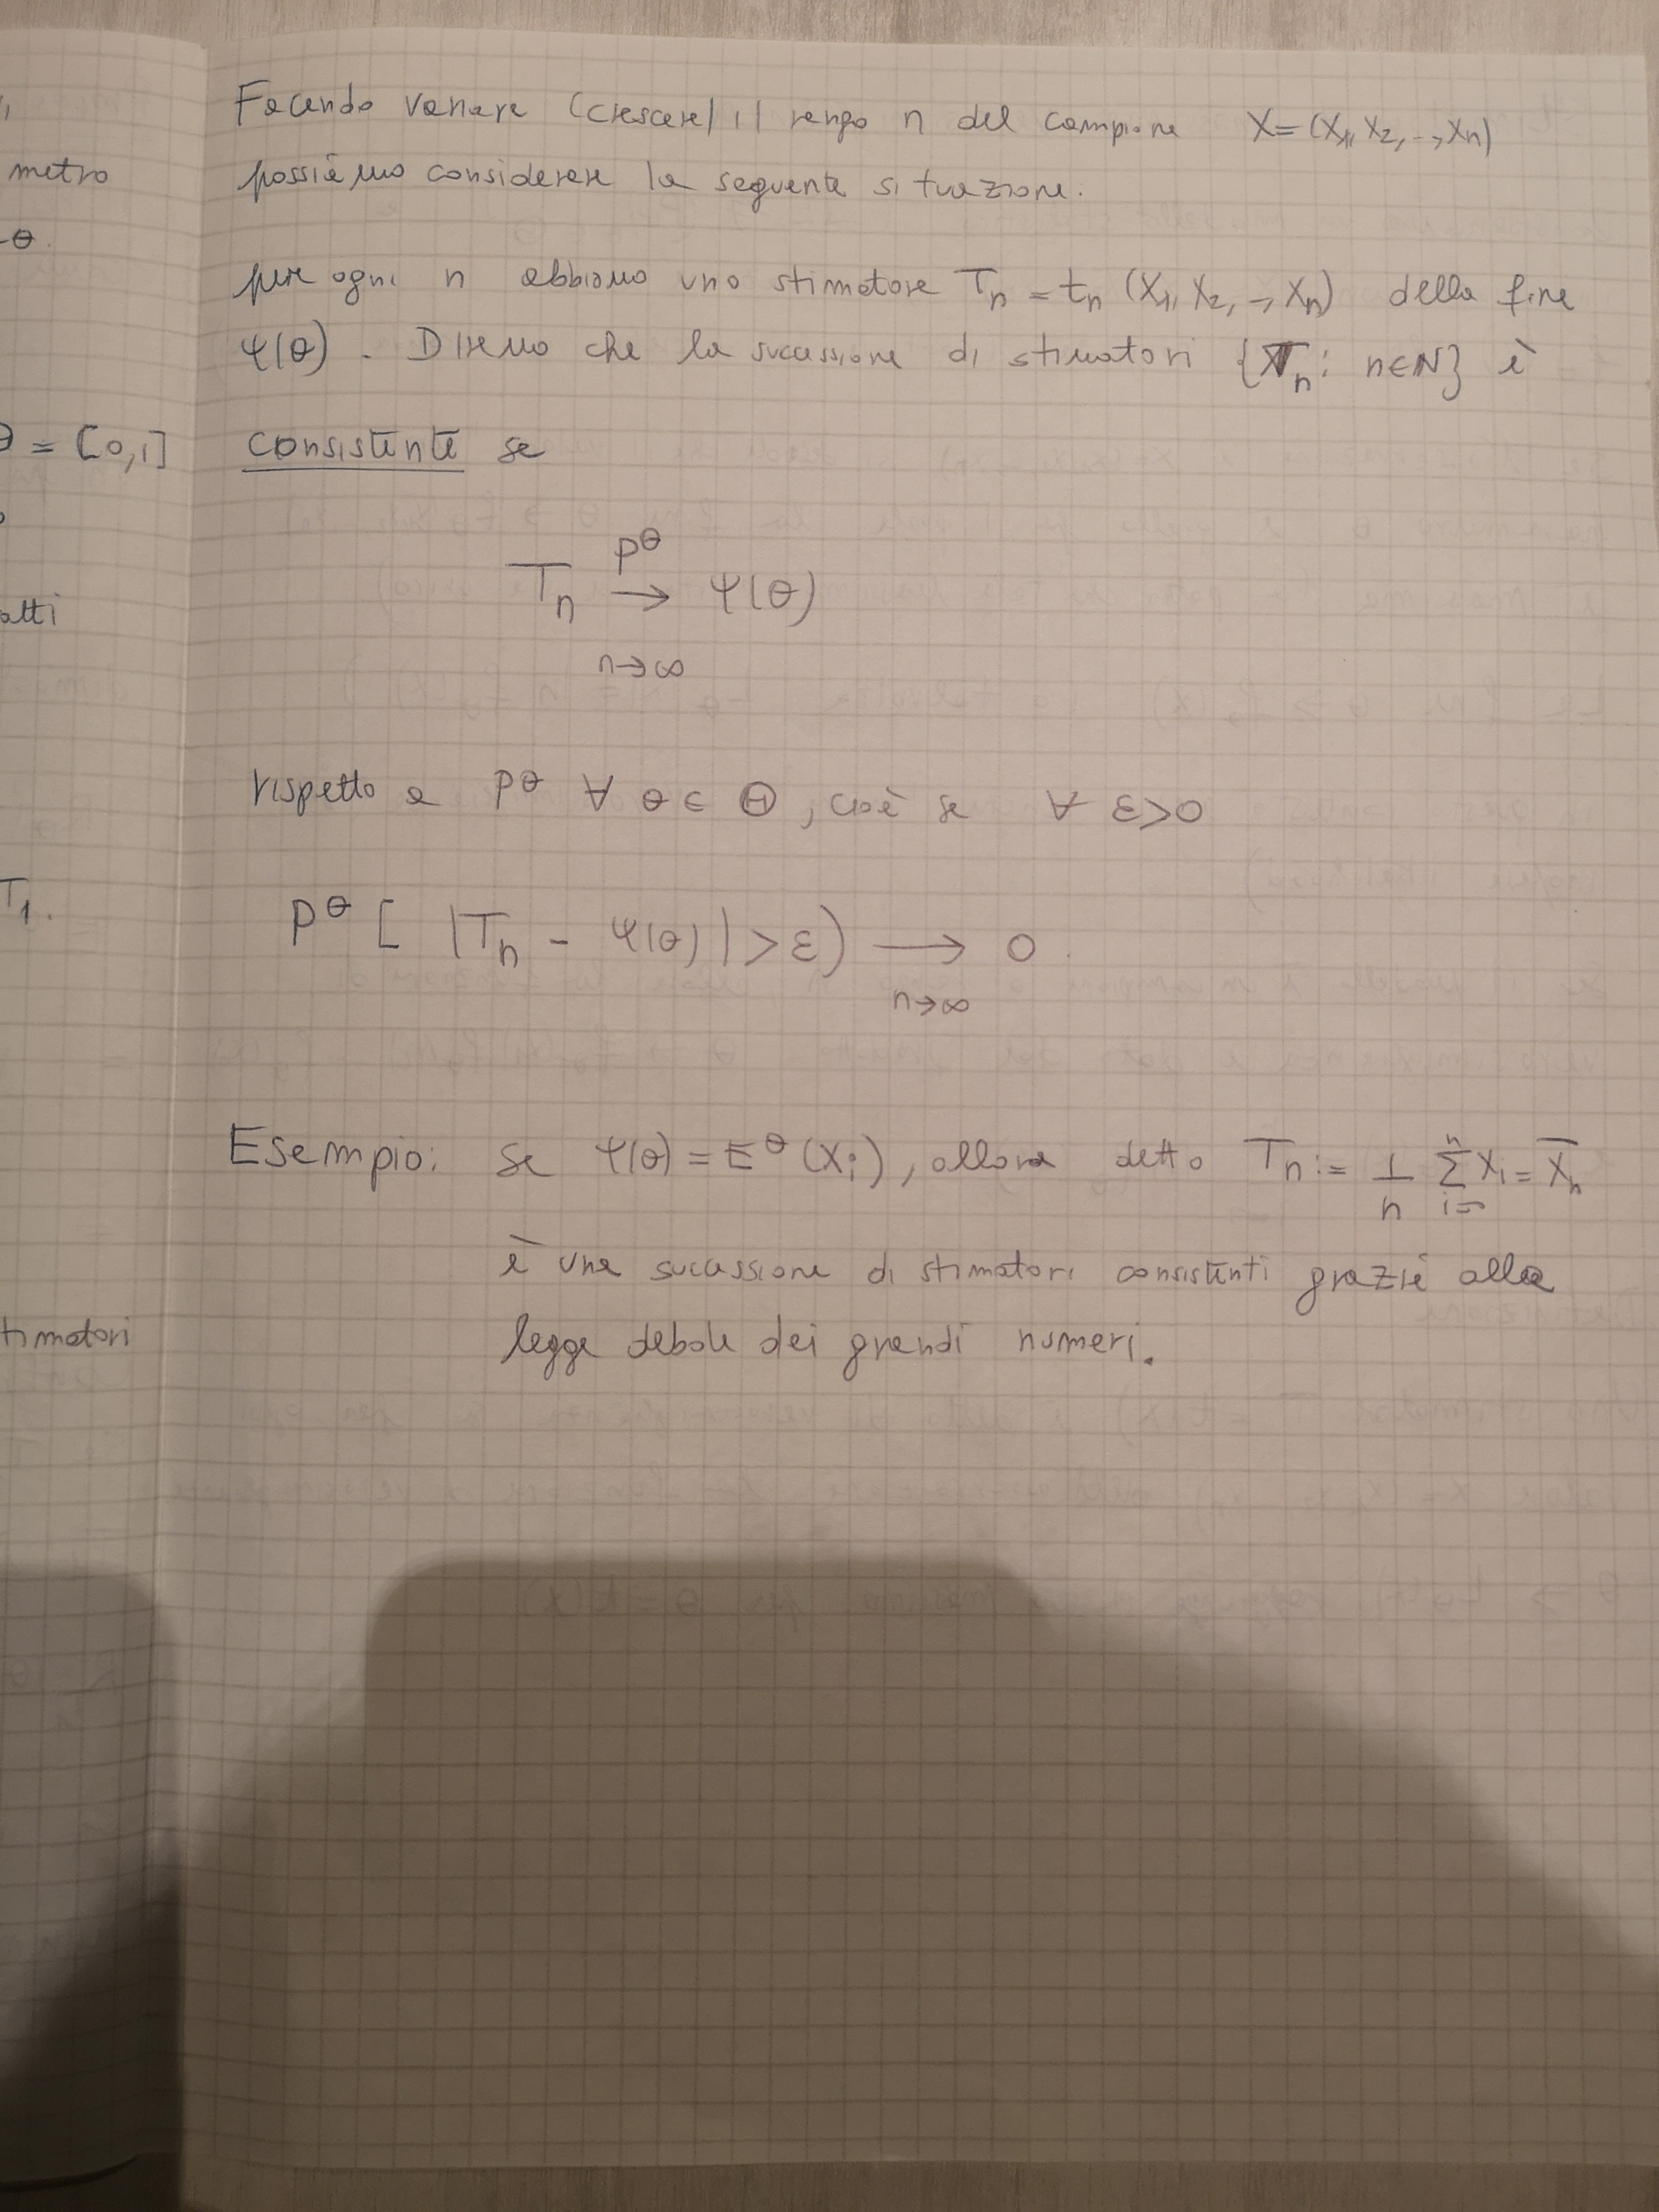 metro
-θ.
θ = [0,1]
atti
T1.
timatori
Facendo variare (crescere) il rango n del campione X=(X1, X2, .., Xn)
possiamo considerare la seguente situazione.
per ogni n abbiamo uno stimatore Tn = tn (X1, X2, .., Xn) della fine
Ψ(θ). Diremo che la successione di stimatori {Tn: n∈N} è
consistente se
Tn →^{Pθ}_{n→∞} Ψ(θ)
rispetto a Pθ ∀ θ ∈ Θ, cioè se ∀ ε>0
Pθ [ |Tn - Ψ(θ)| > ε) →_{n→∞} 0.
Esempio: se Ψ(θ) = Eθ(Xi), allora detto Tn := 1/n Σ^n_{i=} Xi = X̄n
è una successione di stimatori consistenti grazie alla
legge debole dei grandi numeri.